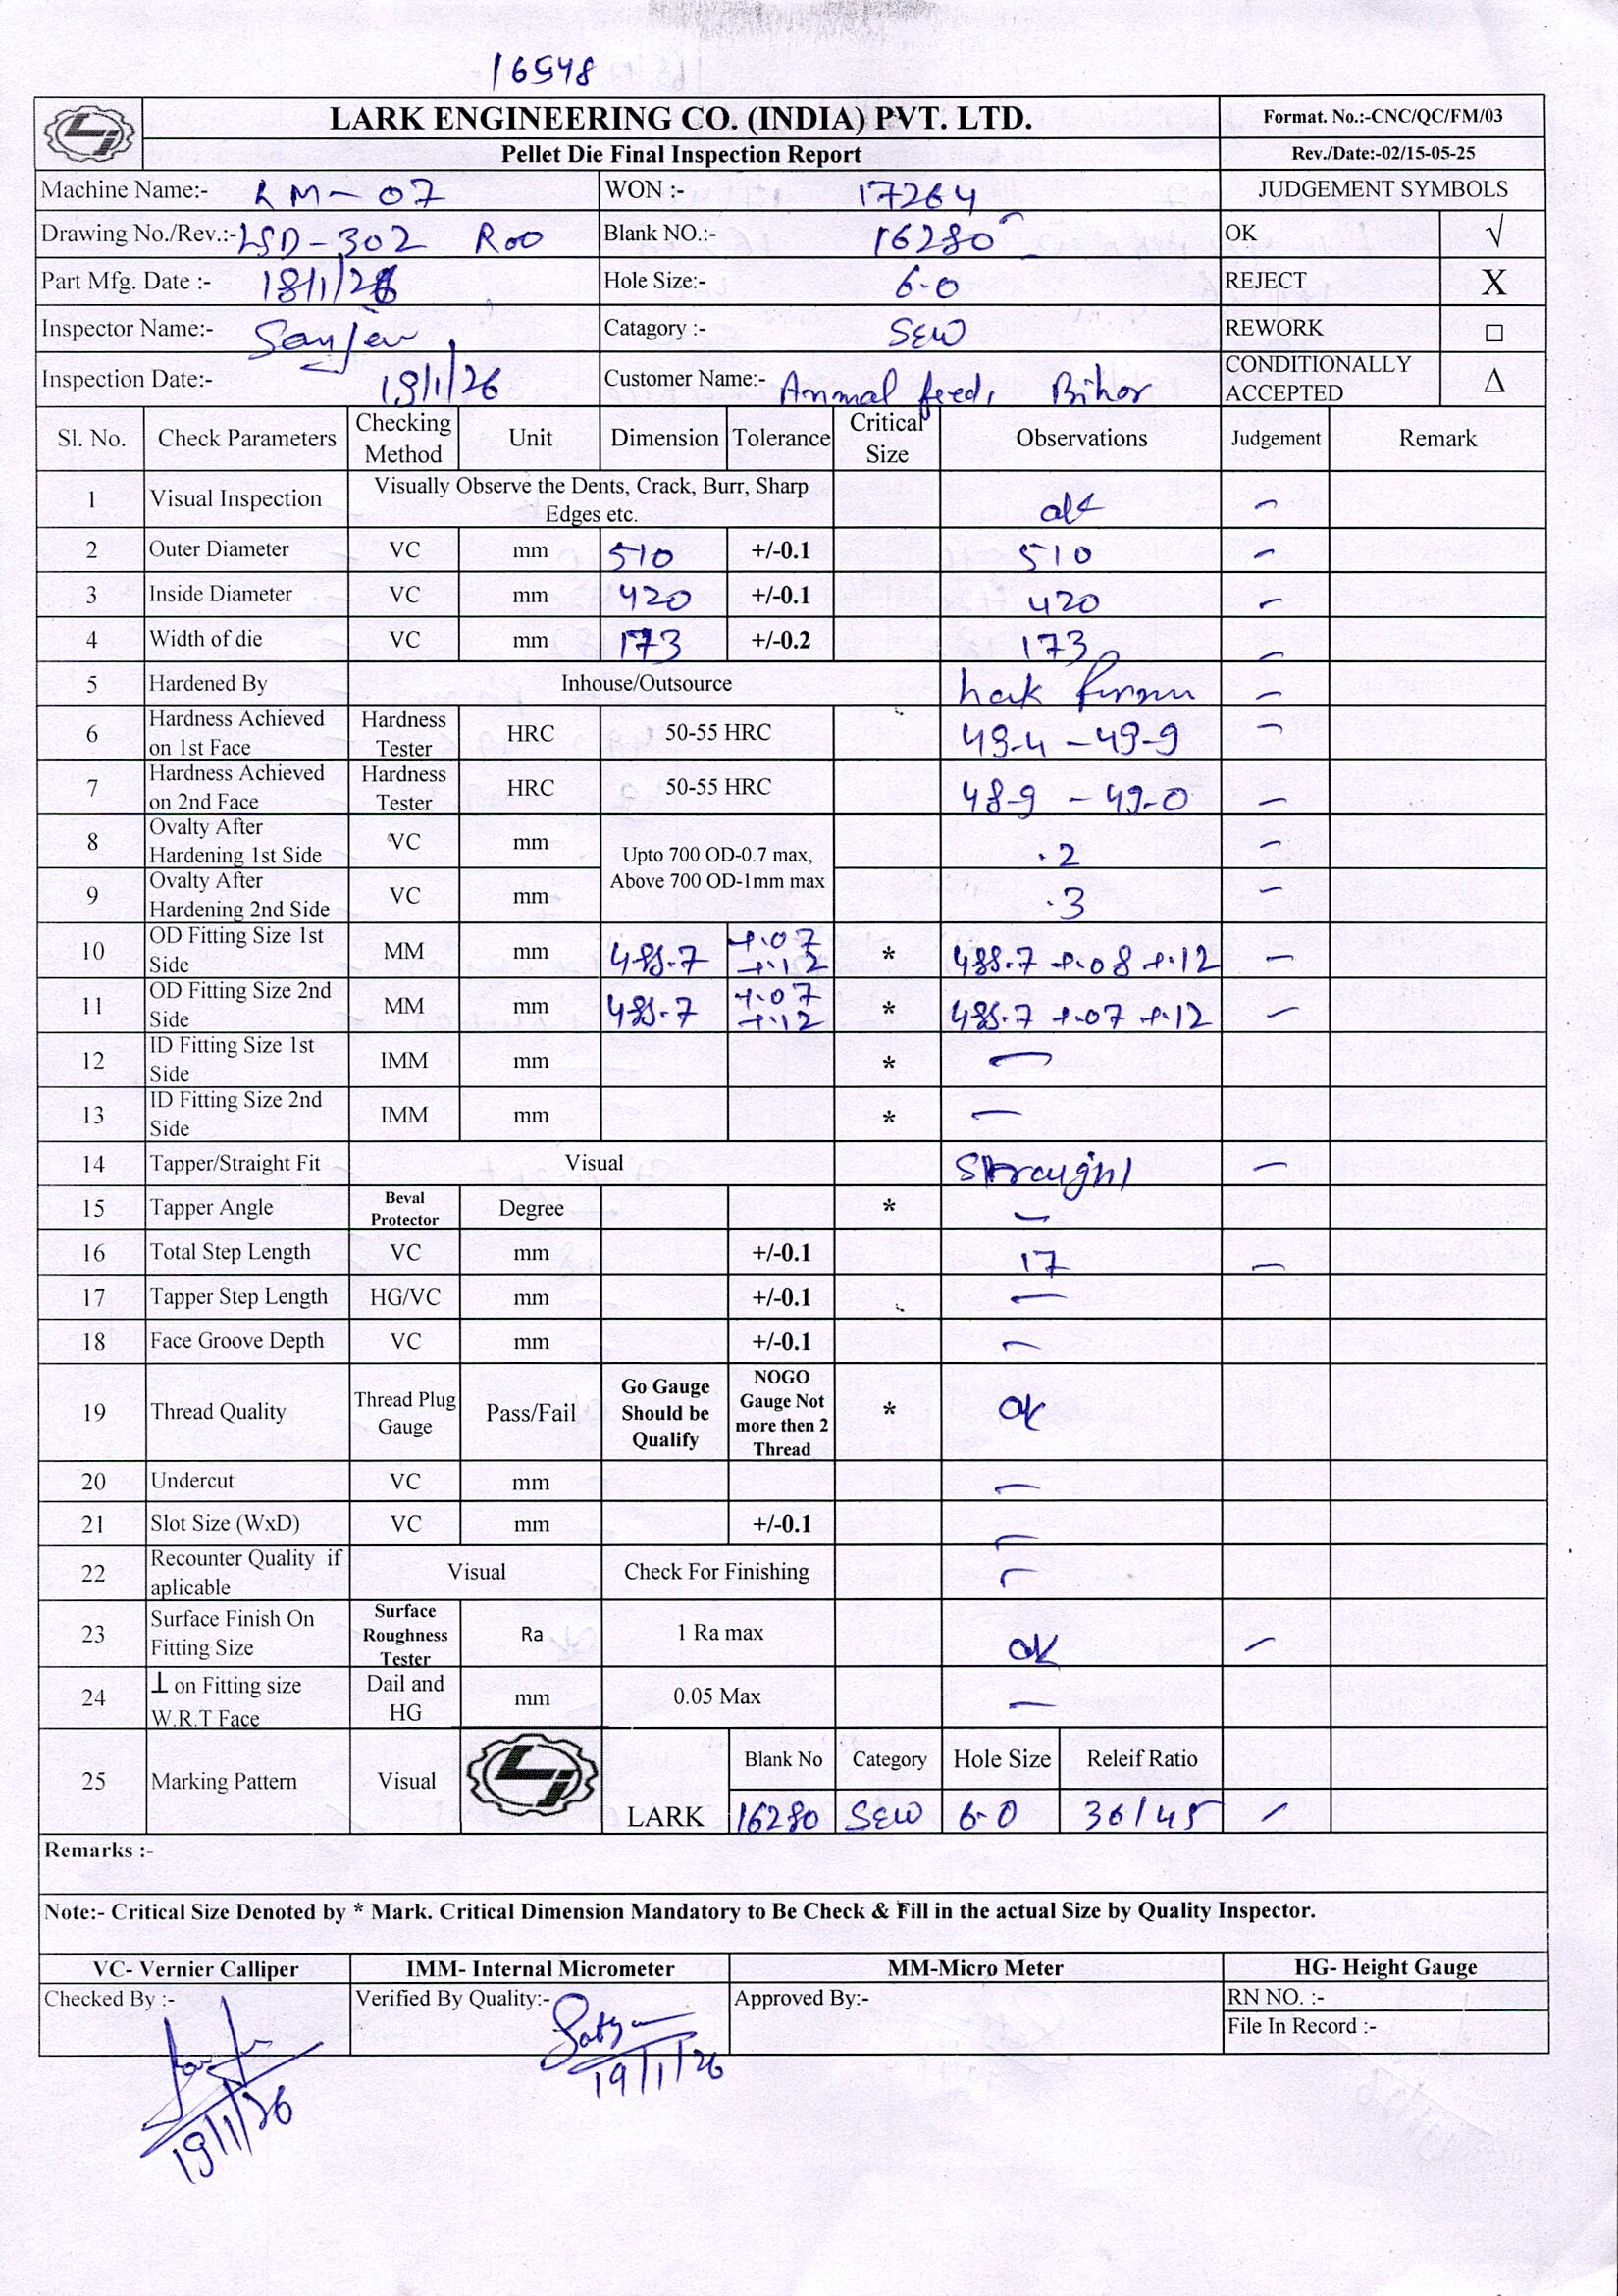 16548
LARK ENGINEERING CO. (INDIA) PVT. LTD.
Format. No.:-CNC/QC/FM/03
Pellet Die Final Inspection Report
Rev./Date:-02/15-05-25
Machine Name:- LM-07 WON :- 17264 JUDGEMENT SYMBOLS
Drawing No./Rev.:- LSD-302 R00 Blank NO.:- 16280 OK √
Part Mfg. Date :- 18/1/26 Hole Size:- 6.0 REJECT X
Inspector Name:- Catagory :- SEW REWORK □
Inspection Date:- 19/1/26 Customer Name:- Animal feed, Bihar CONDITIONALLY ACCEPTED Δ
Sl. No. Check Parameters Checking Method Unit Dimension Tolerance Critical Size Observations Judgement Remark
1 Visual Inspection Visually Observe the Dents, Crack, Burr, Sharp Edges etc. ok –
2 Outer Diameter VC mm 510 +/-0.1 510 –
3 Inside Diameter VC mm 420 +/-0.1 420 –
4 Width of die VC mm 173 +/-0.2 173 –
5 Hardened By Inhouse/Outsource –
6 Hardness Achieved on 1st Face Hardness Tester HRC 50-55 HRC 49.4 - 49.9 –
7 Hardness Achieved on 2nd Face Hardness Tester HRC 50-55 HRC 48.9 - 49.0 –
8 Ovalty After Hardening 1st Side VC mm Upto 700 OD-0.7 max, Above 700 OD-1mm max .2 –
9 Ovalty After Hardening 2nd Side VC mm .3 –
10 OD Fitting Size 1st Side MM mm +.07 +.12 * +.08 +.12 –
11 OD Fitting Size 2nd Side MM mm +.07 +.12 * +.07 +.12 –
12 ID Fitting Size 1st Side IMM mm * –
13 ID Fitting Size 2nd Side IMM mm * –
14 Tapper/Straight Fit Visual Straight –
15 Tapper Angle Beval Protector Degree * –
16 Total Step Length VC mm +/-0.1 17 –
17 Tapper Step Length HG/VC mm +/-0.1 –
18 Face Groove Depth VC mm +/-0.1 –
19 Thread Quality Thread Plug Gauge Pass/Fail Go Gauge Should be Qualify NOGO Gauge Not more then 2 Thread * ok
20 Undercut VC mm –
21 Slot Size (WxD) VC mm +/-0.1 –
22 Recounter Quality if aplicable Visual Check For Finishing –
23 Surface Finish On Fitting Size Surface Roughness Tester Ra 1 Ra max ok –
24 ⊥ on Fitting size W.R.T Face Dail and HG mm 0.05 Max –
25 Marking Pattern Visual LARK Blank No Category Hole Size Releif Ratio
16280 SEW 6.0 36/45 –
Remarks :-
Note:- Critical Size Denoted by * Mark. Critical Dimension Mandatory to Be Check & Fill in the actual Size by Quality Inspector.
VC- Vernier Calliper IMM- Internal Micrometer MM-Micro Meter HG- Height Gauge
Checked By :- Verified By Quality:- Approved By:- RN NO. :-
File In Record :-
19/1/26
19/1/26